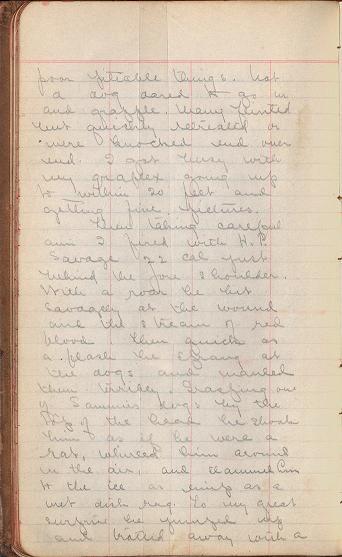 poor pitiable things. Not
a dog dared to go in
and grapple. Many feinted
but quickly retreated or
were knocked end over
end. I got busy with
my graflex going up
to within 20 feet and
getting fine pictures.
Then taking careful
aim I fired with H.P.
Savage 22 cal just
behind the fore shoulder.
With a roar he bit
savagely at the wound
and the stream of red
blood then quick as
a flash he sprang at
the dogs and mauled
them terribly. Grasping one
of Sammies dogs by the
top of the head he shook
him as if he were a
rat, whirled him around
in the air, and slammed him
to the ice as limp as a
wet dish rag. To my great
surprise he jumped up
and trotted away with a